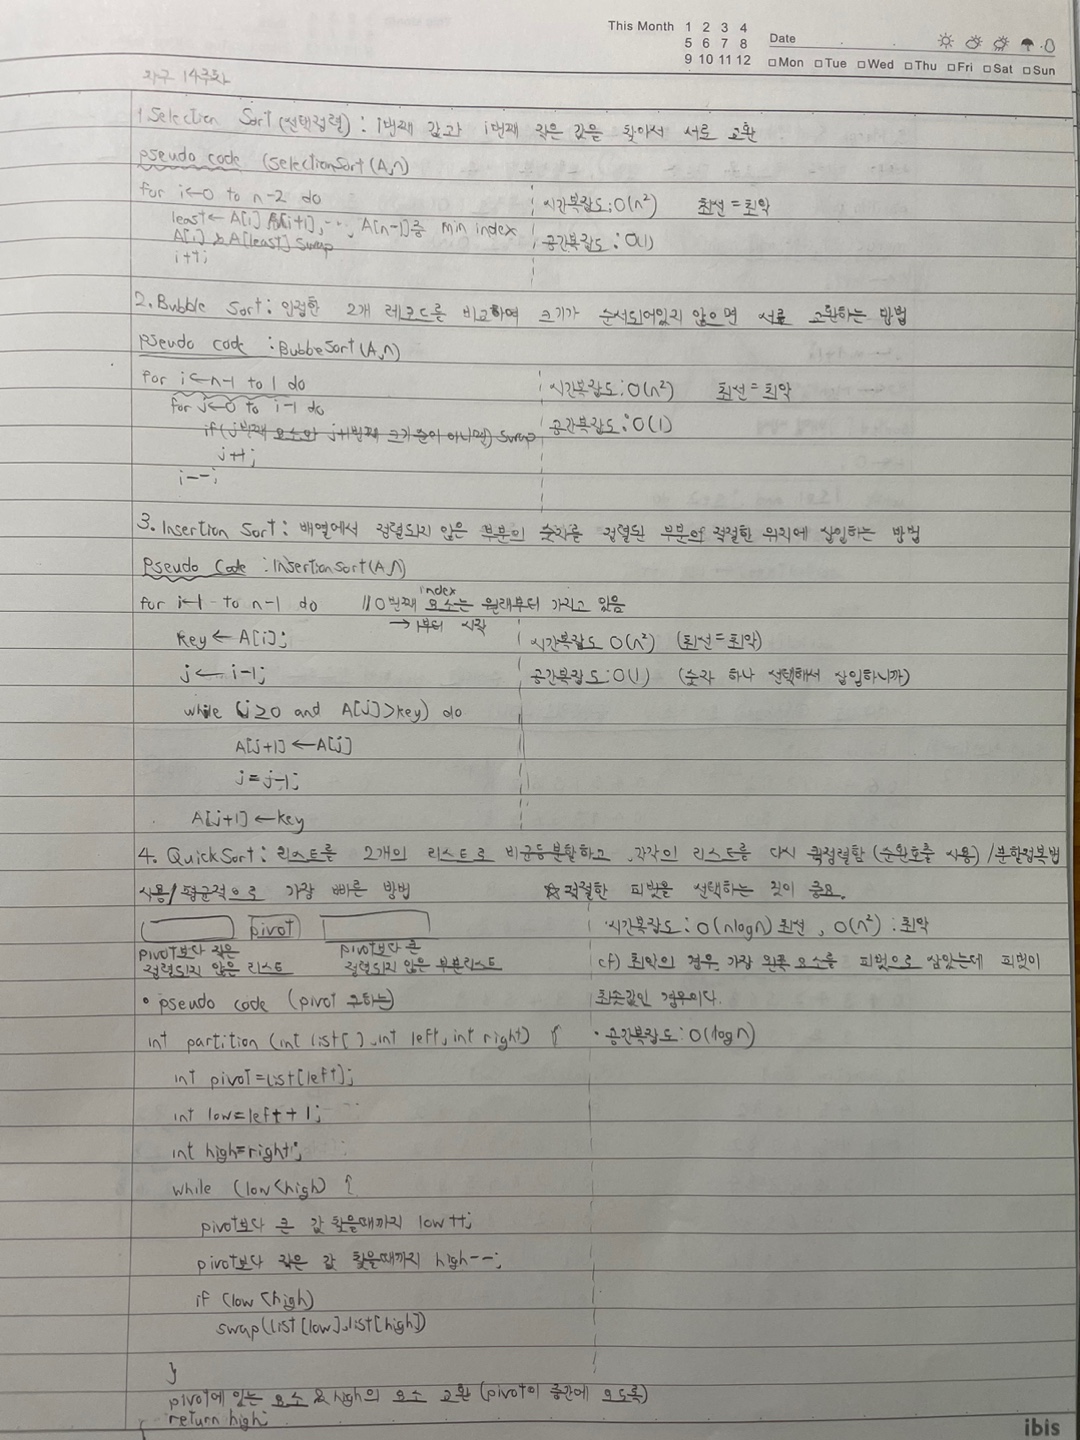 This Month 1 2 3 4
5 6 7 8
9 10 11 12
Date
□Mon □Tue □Wed □Thu □Fri □Sat □Sun
자구 14주차
1. Selection Sort (선택정렬) : i번째 값과 i번째 작은 값을 찾아서 서로 교환
pseudo code (SelectionSort(A,n)
for i←0 to n-2 do
least← A[i] A[i+1], ..., A[n-1]중 min index
A[i] A[least] swap
i++;
시간복잡도:O(n²) 최선=최악
공간복잡도: O(1)
2. Bubble Sort: 인접한 2개 레코드를 비교하여 크기가 순서되어있지 않으면 서로 교환하는 방법
pseudo code : BubbeSort(A,n)
for i←n-1 to 1 do
for j←0 to i-1 do
if(j번째 요소와 j+1번째 크기순이 아니면) swap
j++;
i--;
시간복잡도:O(n²) 최선=최악
공간복잡도: O(1)
3. Insertion Sort: 배열에서 정렬되지 않은 부분의 숫자를 정렬된 부분의 적절한 위치에 삽입하는 방법
Pseudo Code : InsertionSort(A,n)
for i←1 to n-1 do //0번째 index 요소는 원래부터 가지고 있음
→1부터 시작
key ← A[i];
j ← i-1;
while (j≥0 and A[j]>key) do
A[j+1] ← A[j]
j = j-1;
A[j+1] ← key
시간복잡도 O(n²) (최선=최악)
공간복잡도:O(1) (숫자 하나 선택해서 삽입하니까)
4. QuickSort: 리스트를 2개의 리스트로 비균등분할하고, 각각의 리스트를 다시 퀵정렬함 (순환호출 사용) /분할정복법
사용/평균적으로 가장 빠른 방법 ☆적절한 피벗을 선택하는 것이 중요.
pivot
pivot보다 작은
정렬되지 않은 리스트
pivot보다 큰
정렬되지 않은 부분리스트
시간복잡도: O(nlogn) 최선, O(n²) : 최악
cf) 최악의 경우, 가장 왼쪽 요소를 피벗으로 삼았는데 피벗이
최솟값인 경우이다.
• 공간복잡도: O(logn)
• pseudo code (pivot 구하는)
int partition (int list[], int left, int right) {
int pivot=list[left];
int low=left+1;
int high=right;
while (low<high) {
pivot보다 큰 값 찾을때까지 low++;
pivot보다 작은 값 찾을때까지 high--;
if (low<high)
swap(list[low], list[high])
}
pivot에 있는 요소 & high의 요소 교환 (pivot이 중간에 오도록)
return high;
}
ibis